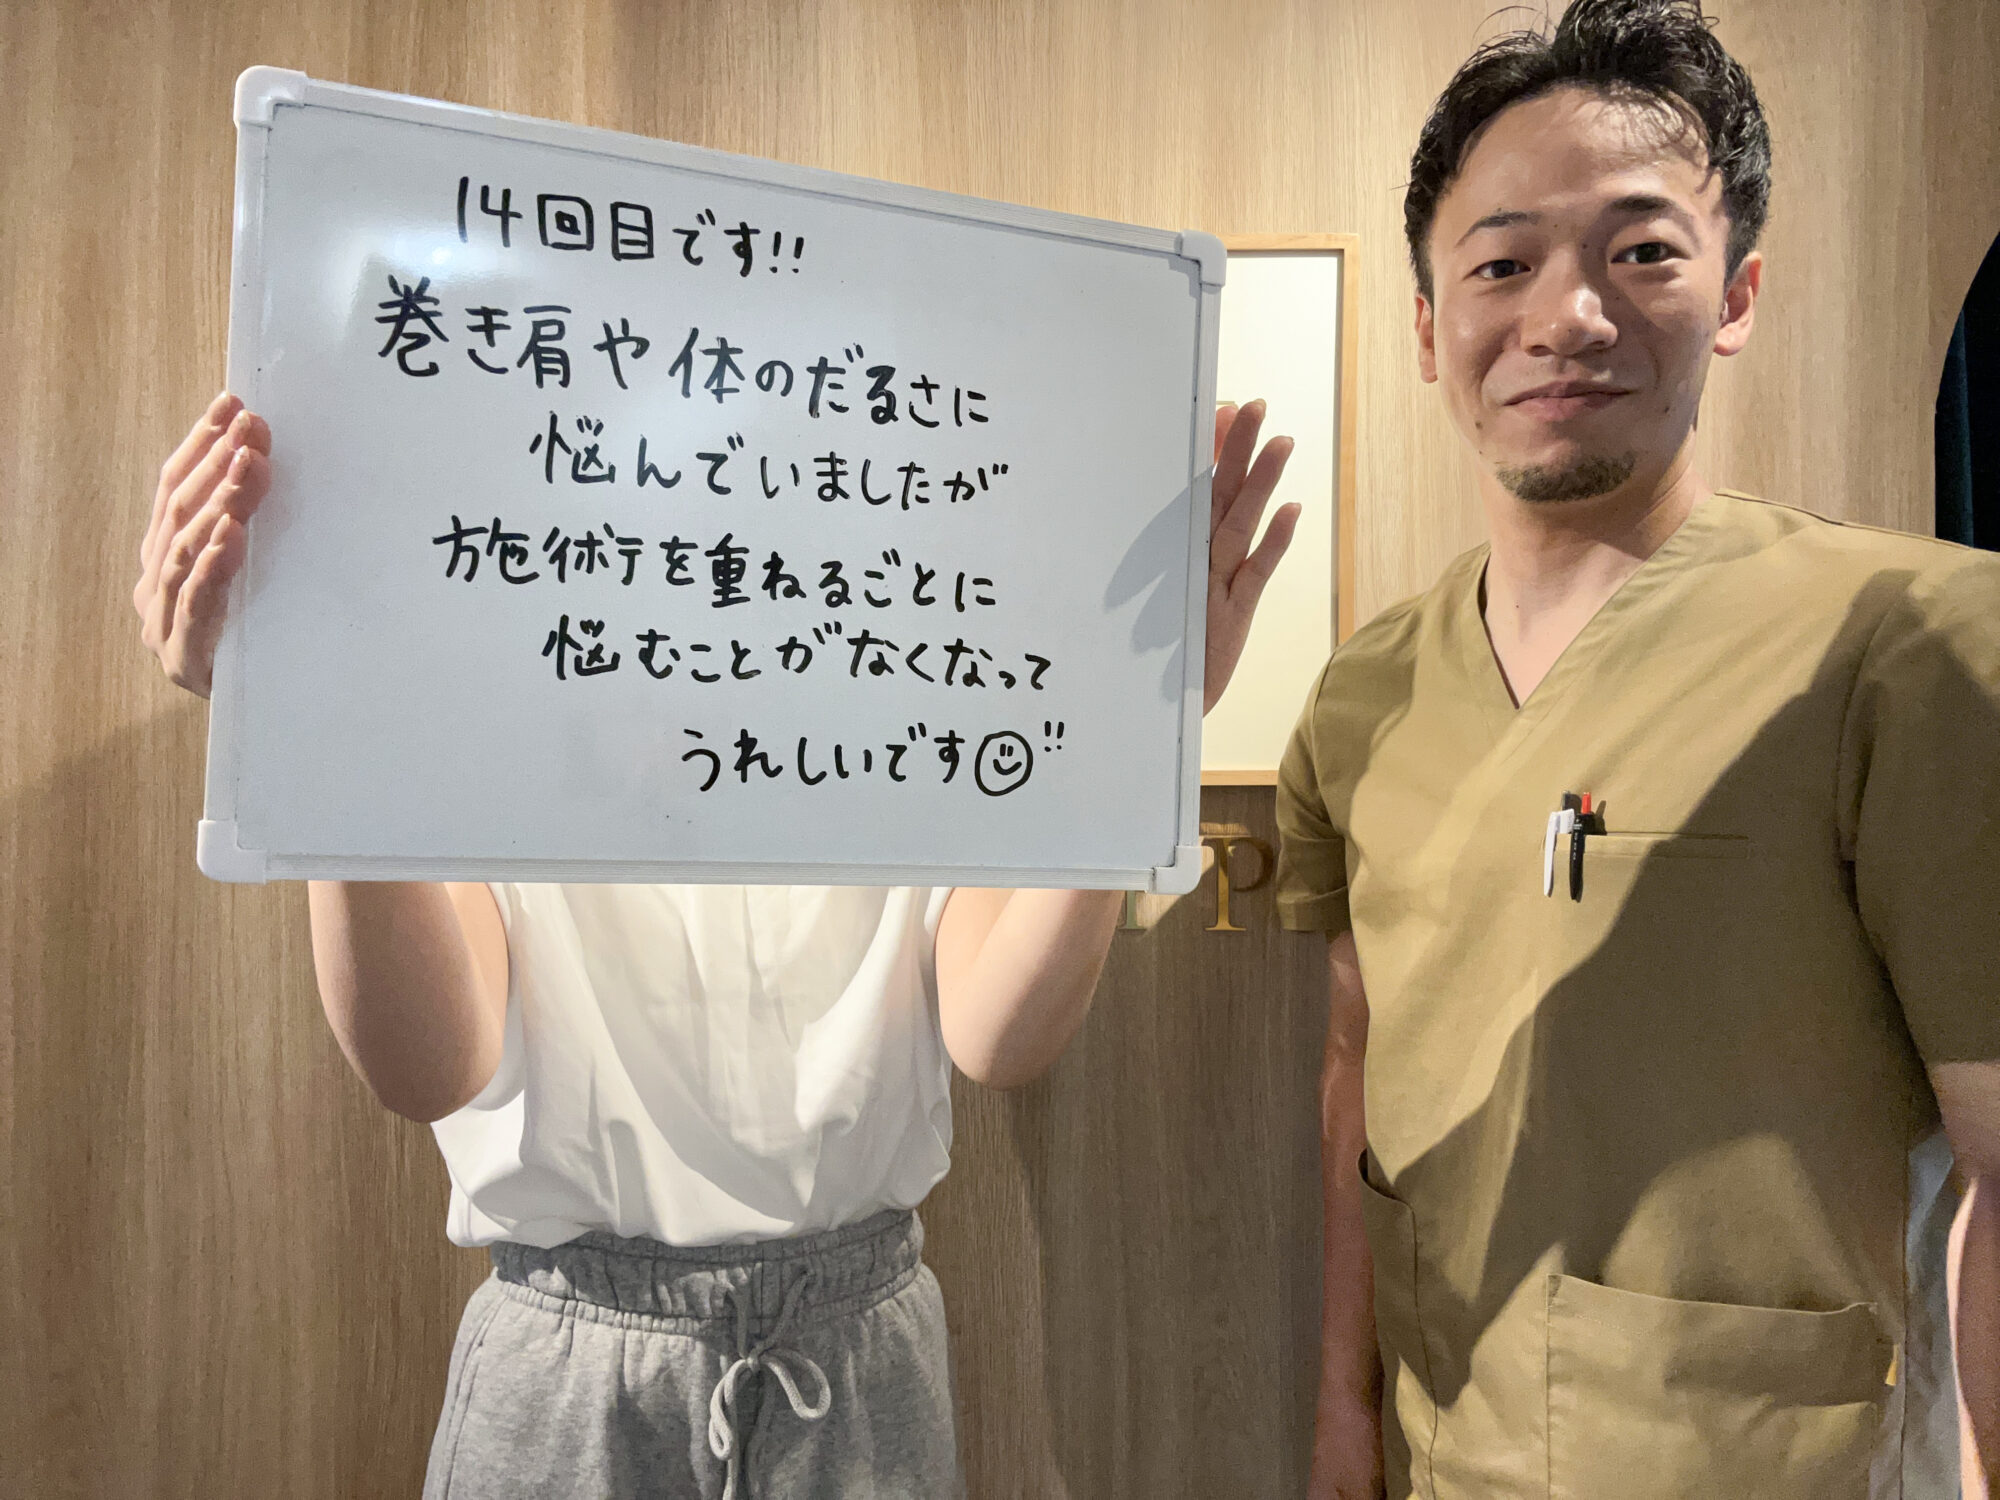 14回目です!!
巻き肩や体のだるさに
悩んでいましたが
施術を重ねるごとに
悩むことがなくなって
うれしいです!!
P